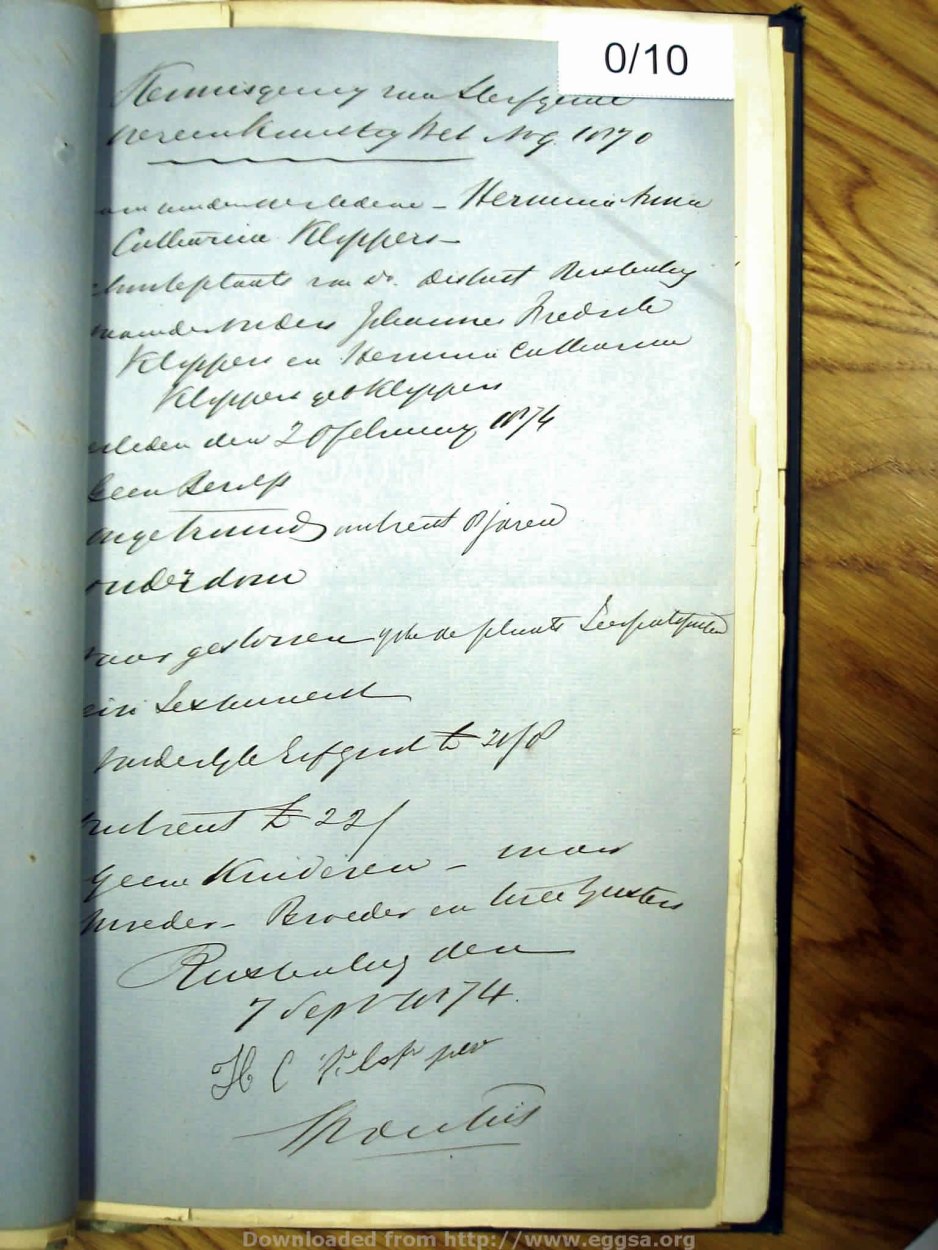 0/10
Kennisgeving van Sterfgeval
overeenkomstig Wet No 9. 1870
Hermina Anna
Catharina Klijppers
Geboorteplaats van do. District Rustenburg
Johannes Fredrik
Klijppers en Hermina Catharina
Klijppers geb Klijppers
overleden den 20 february 1874
Geen Beroep
ongetrouwd omtrent 8 jaren
ouderdom
gestorven op de plaats
een Testament
Vaderlyke Erfgoed £
omtrent £ 22/
geene Kinderen - maar
moeder - Broeder en twee Zusters
Rustenburg den
7 Sept 1874.
H C
Downloaded from http://www.eggsa.org